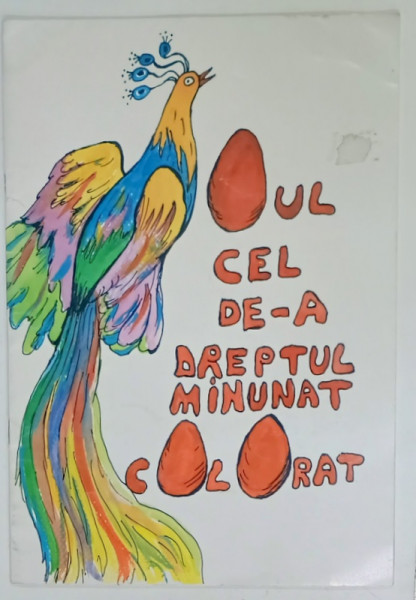 OUL
CEL
DE-A
DREPTUL
MiNUNAT
COLORAT